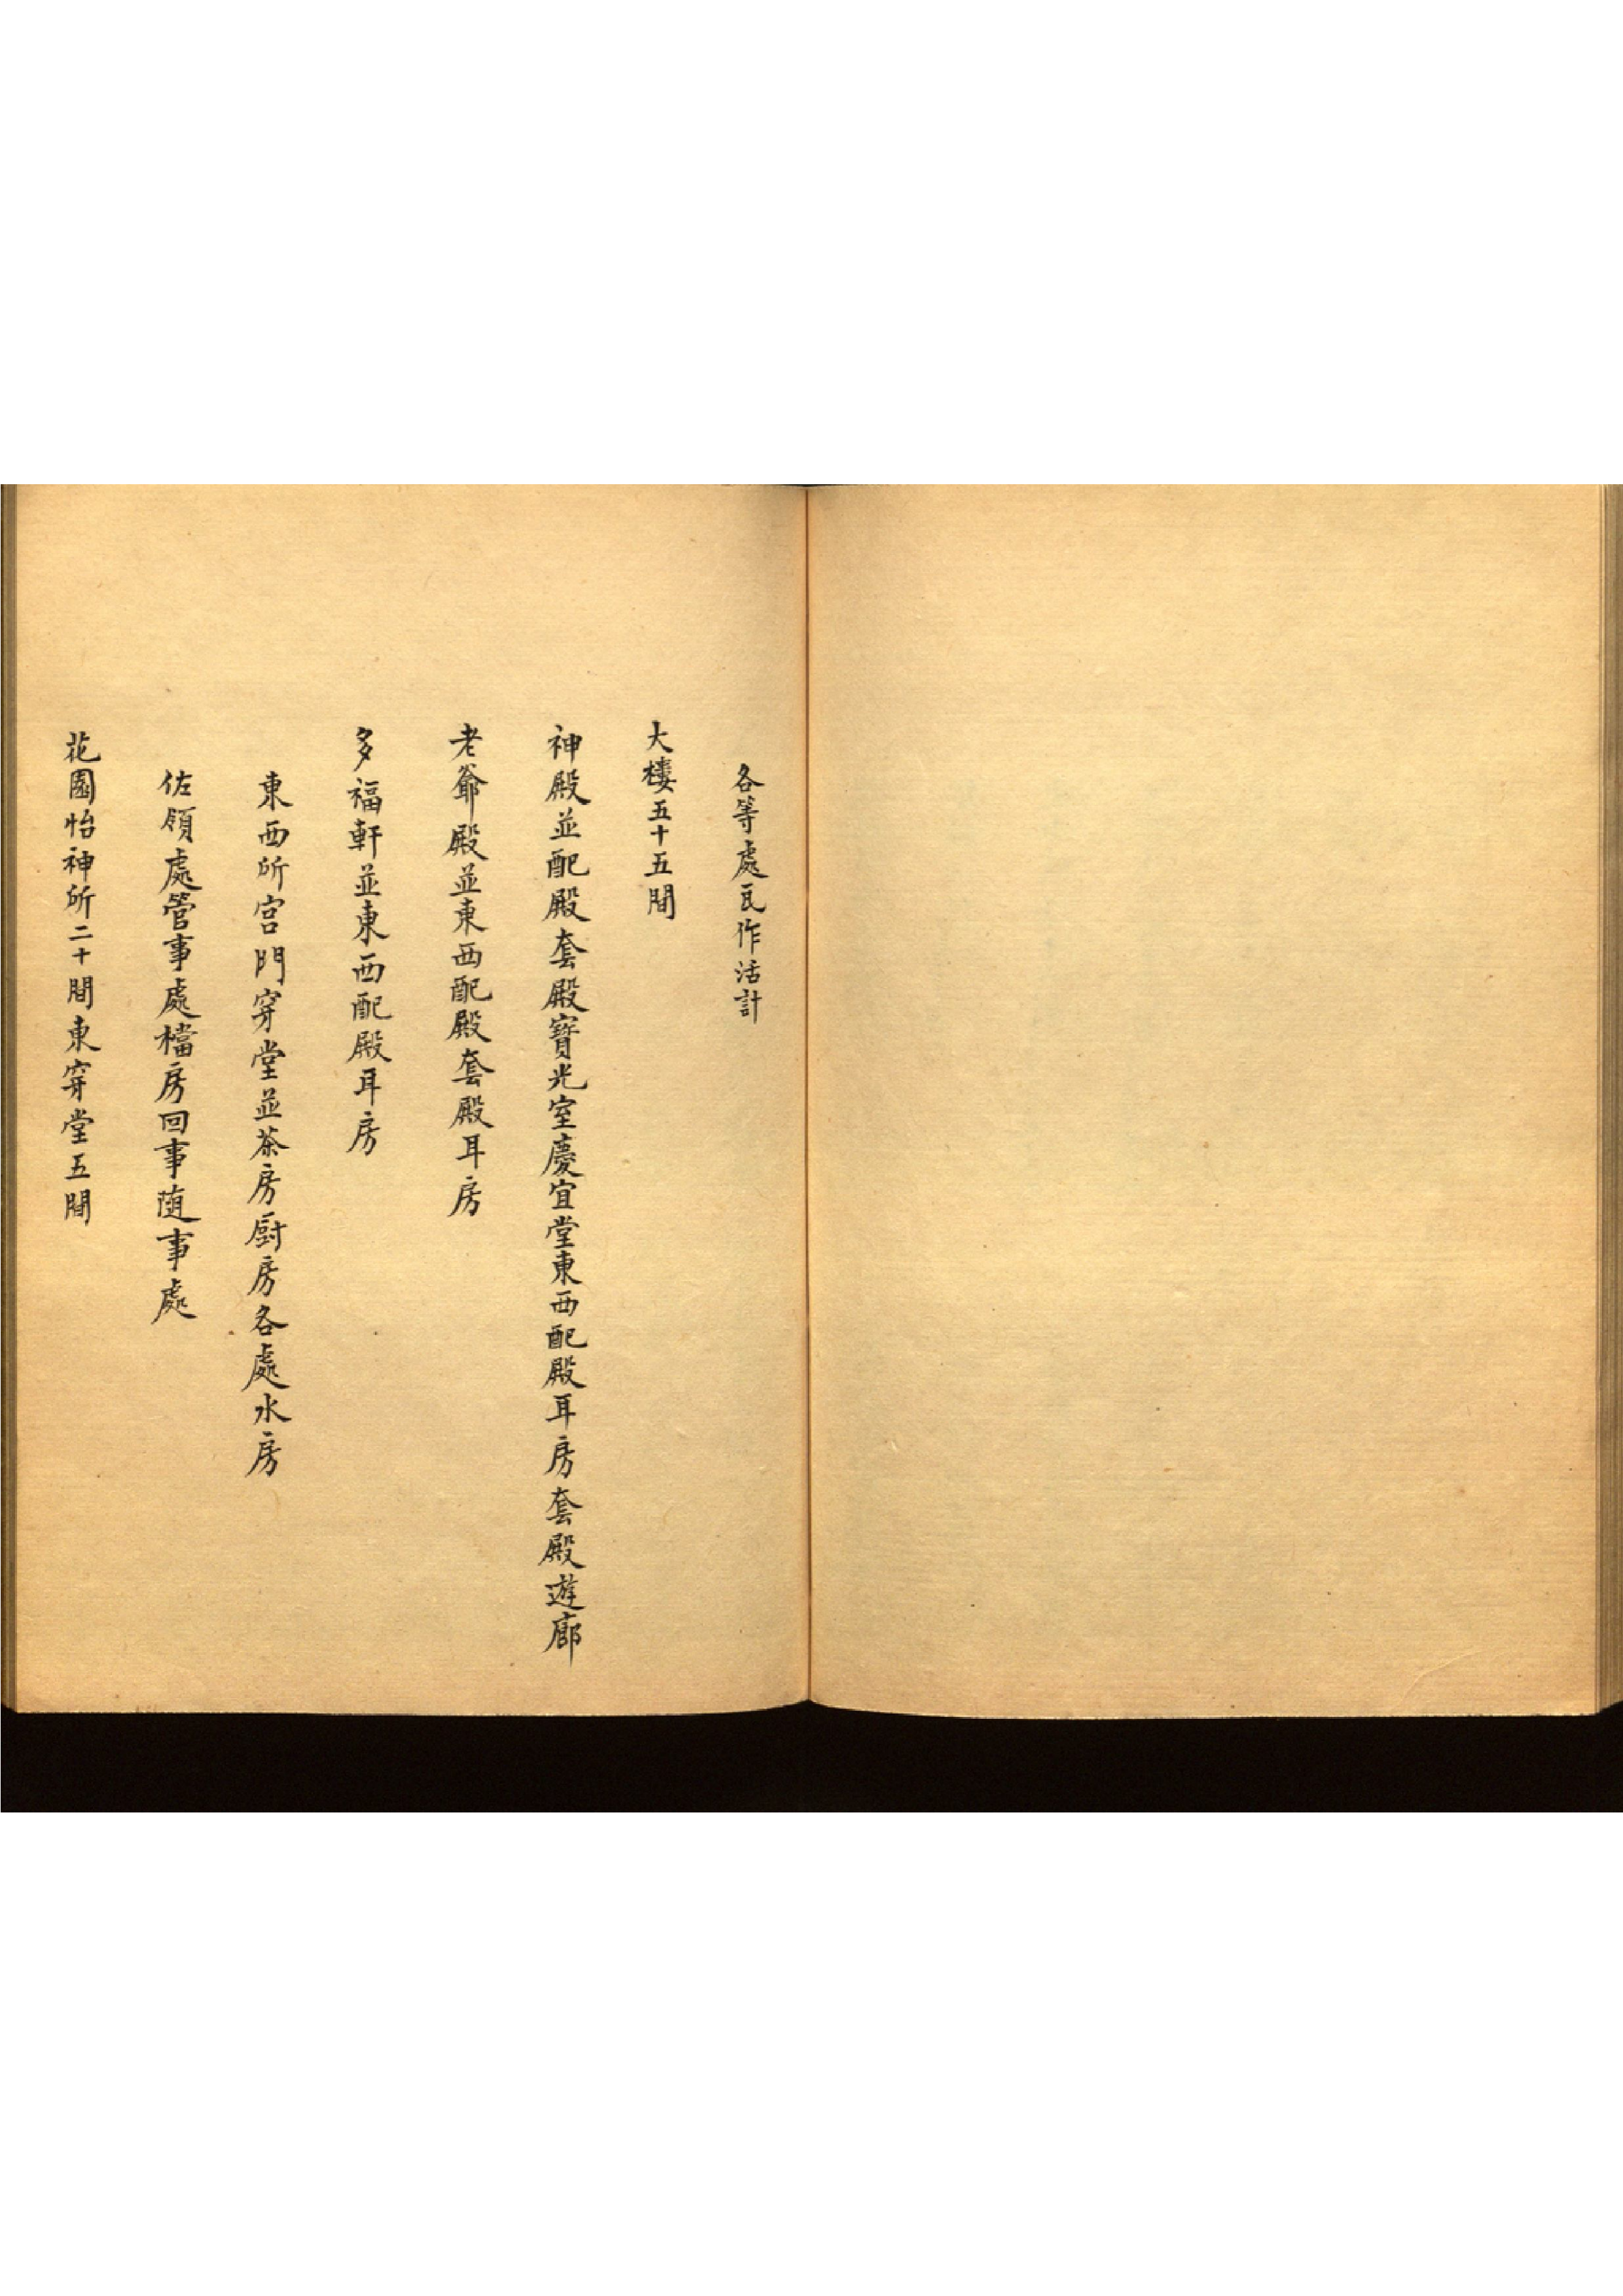 各等處瓦作活計
大樓五十五間
神殿並配殿套殿寶光室慶宜堂東西配殿耳房套殿遊廊
老爺殿並東西配殿套殿耳房
多福軒並東西配殿耳房
東西所宮門穿堂並茶房厨房各處水房
佐領處管事處檔房回事随事處
花園怡神所二十間東穿堂五間